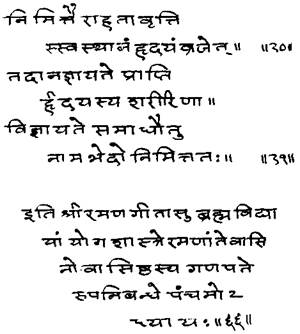 निमित्तैराहतावृत्ति
स्स्वस्थानंहृदयंव्रजेत्॥ ॥३०॥
तदानज्ञायते प्राप्ति
र्हृदयस्य शरीरिणा॥
विज्ञायते समाधौतु
नामभेदो निमित्ततः॥ ॥३१॥
इति श्रीरमणगीतासु ब्रह्मविद्या
यां योग शास्त्रेरमणांतेवासि
नो वासिष्ठस्य गणपते
रुपनिबन्धे पंचमोऽ
ध्यायः॥६६॥